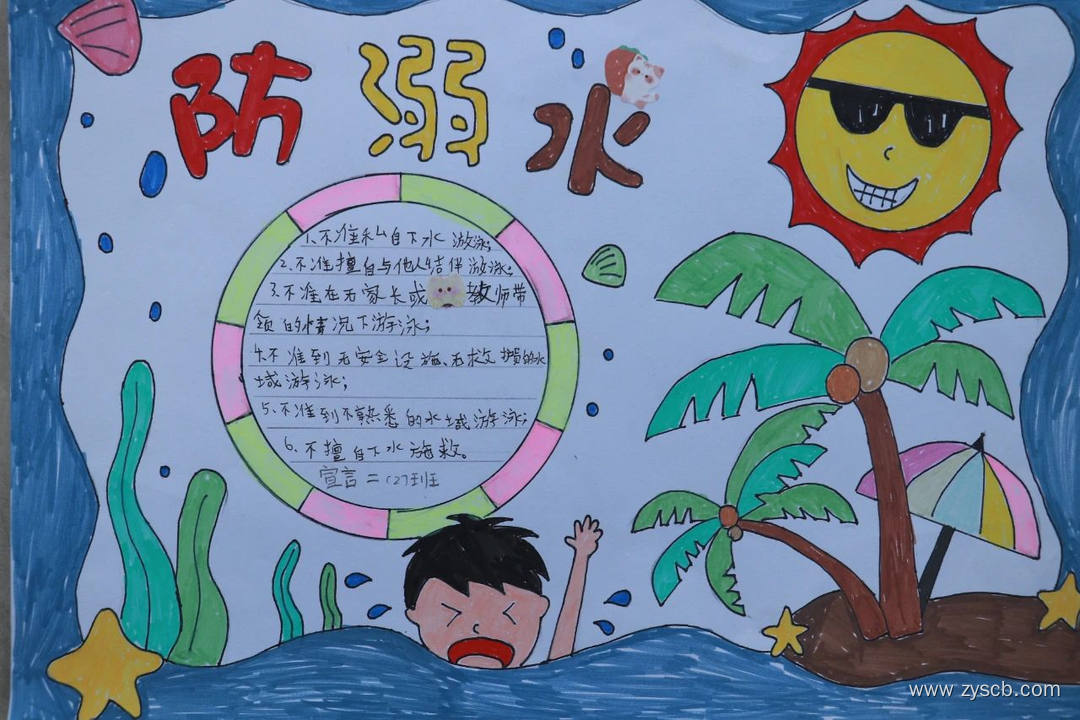 防溺水
1、不准私自下水游泳；
2、不准擅自与他人结伴游泳；
3、不准在无家长或教师带
领的情况下游泳；
4、不准到无安全设施、无救援的水
域游泳；
5、不准到不熟悉的水域游泳；
6、不擅自下水施救。
宣言 二(2)班
www.zyscb.com